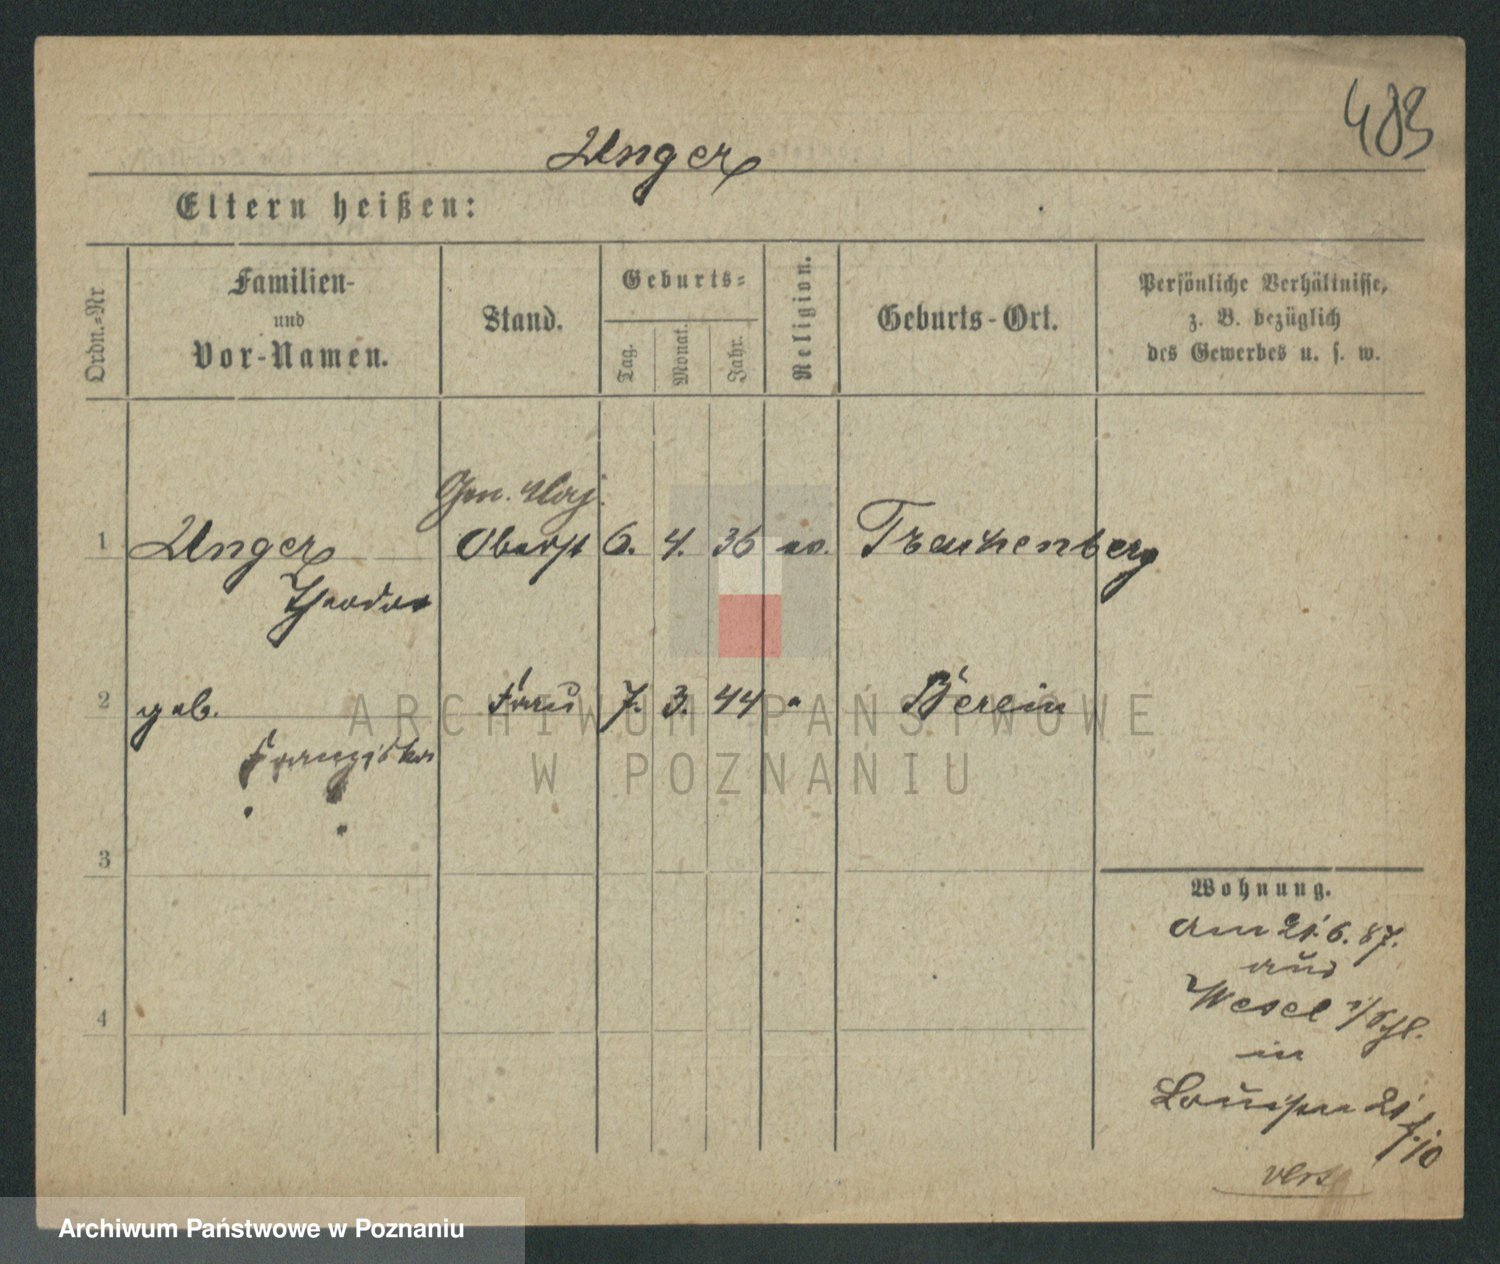 483
Unger
Eltern heißen:
Ordn.-Nr
Familien-
und
Vor-Namen.
Stand.
Geburts-
Tag.
Monat.
Jahr.
Religion.
Geburts-Ort.
Persönliche Verhältnisse,
z. B. bezüglich
des Gewerbes u. s. w.
Gen. Maj.
1 Unger Oberst 6. 4. 36 ev. Trachenberg
Theodor
2 geb. Frau 7. 3. 44 " Berlin
Franziska
3
4
Wohnung.
am 21.6.87.
aus
Wesel
in
Louisen 21
ARCHIWUM PAŃSTWOWE
W POZNANIU
Archiwum Państwowe w Poznaniu